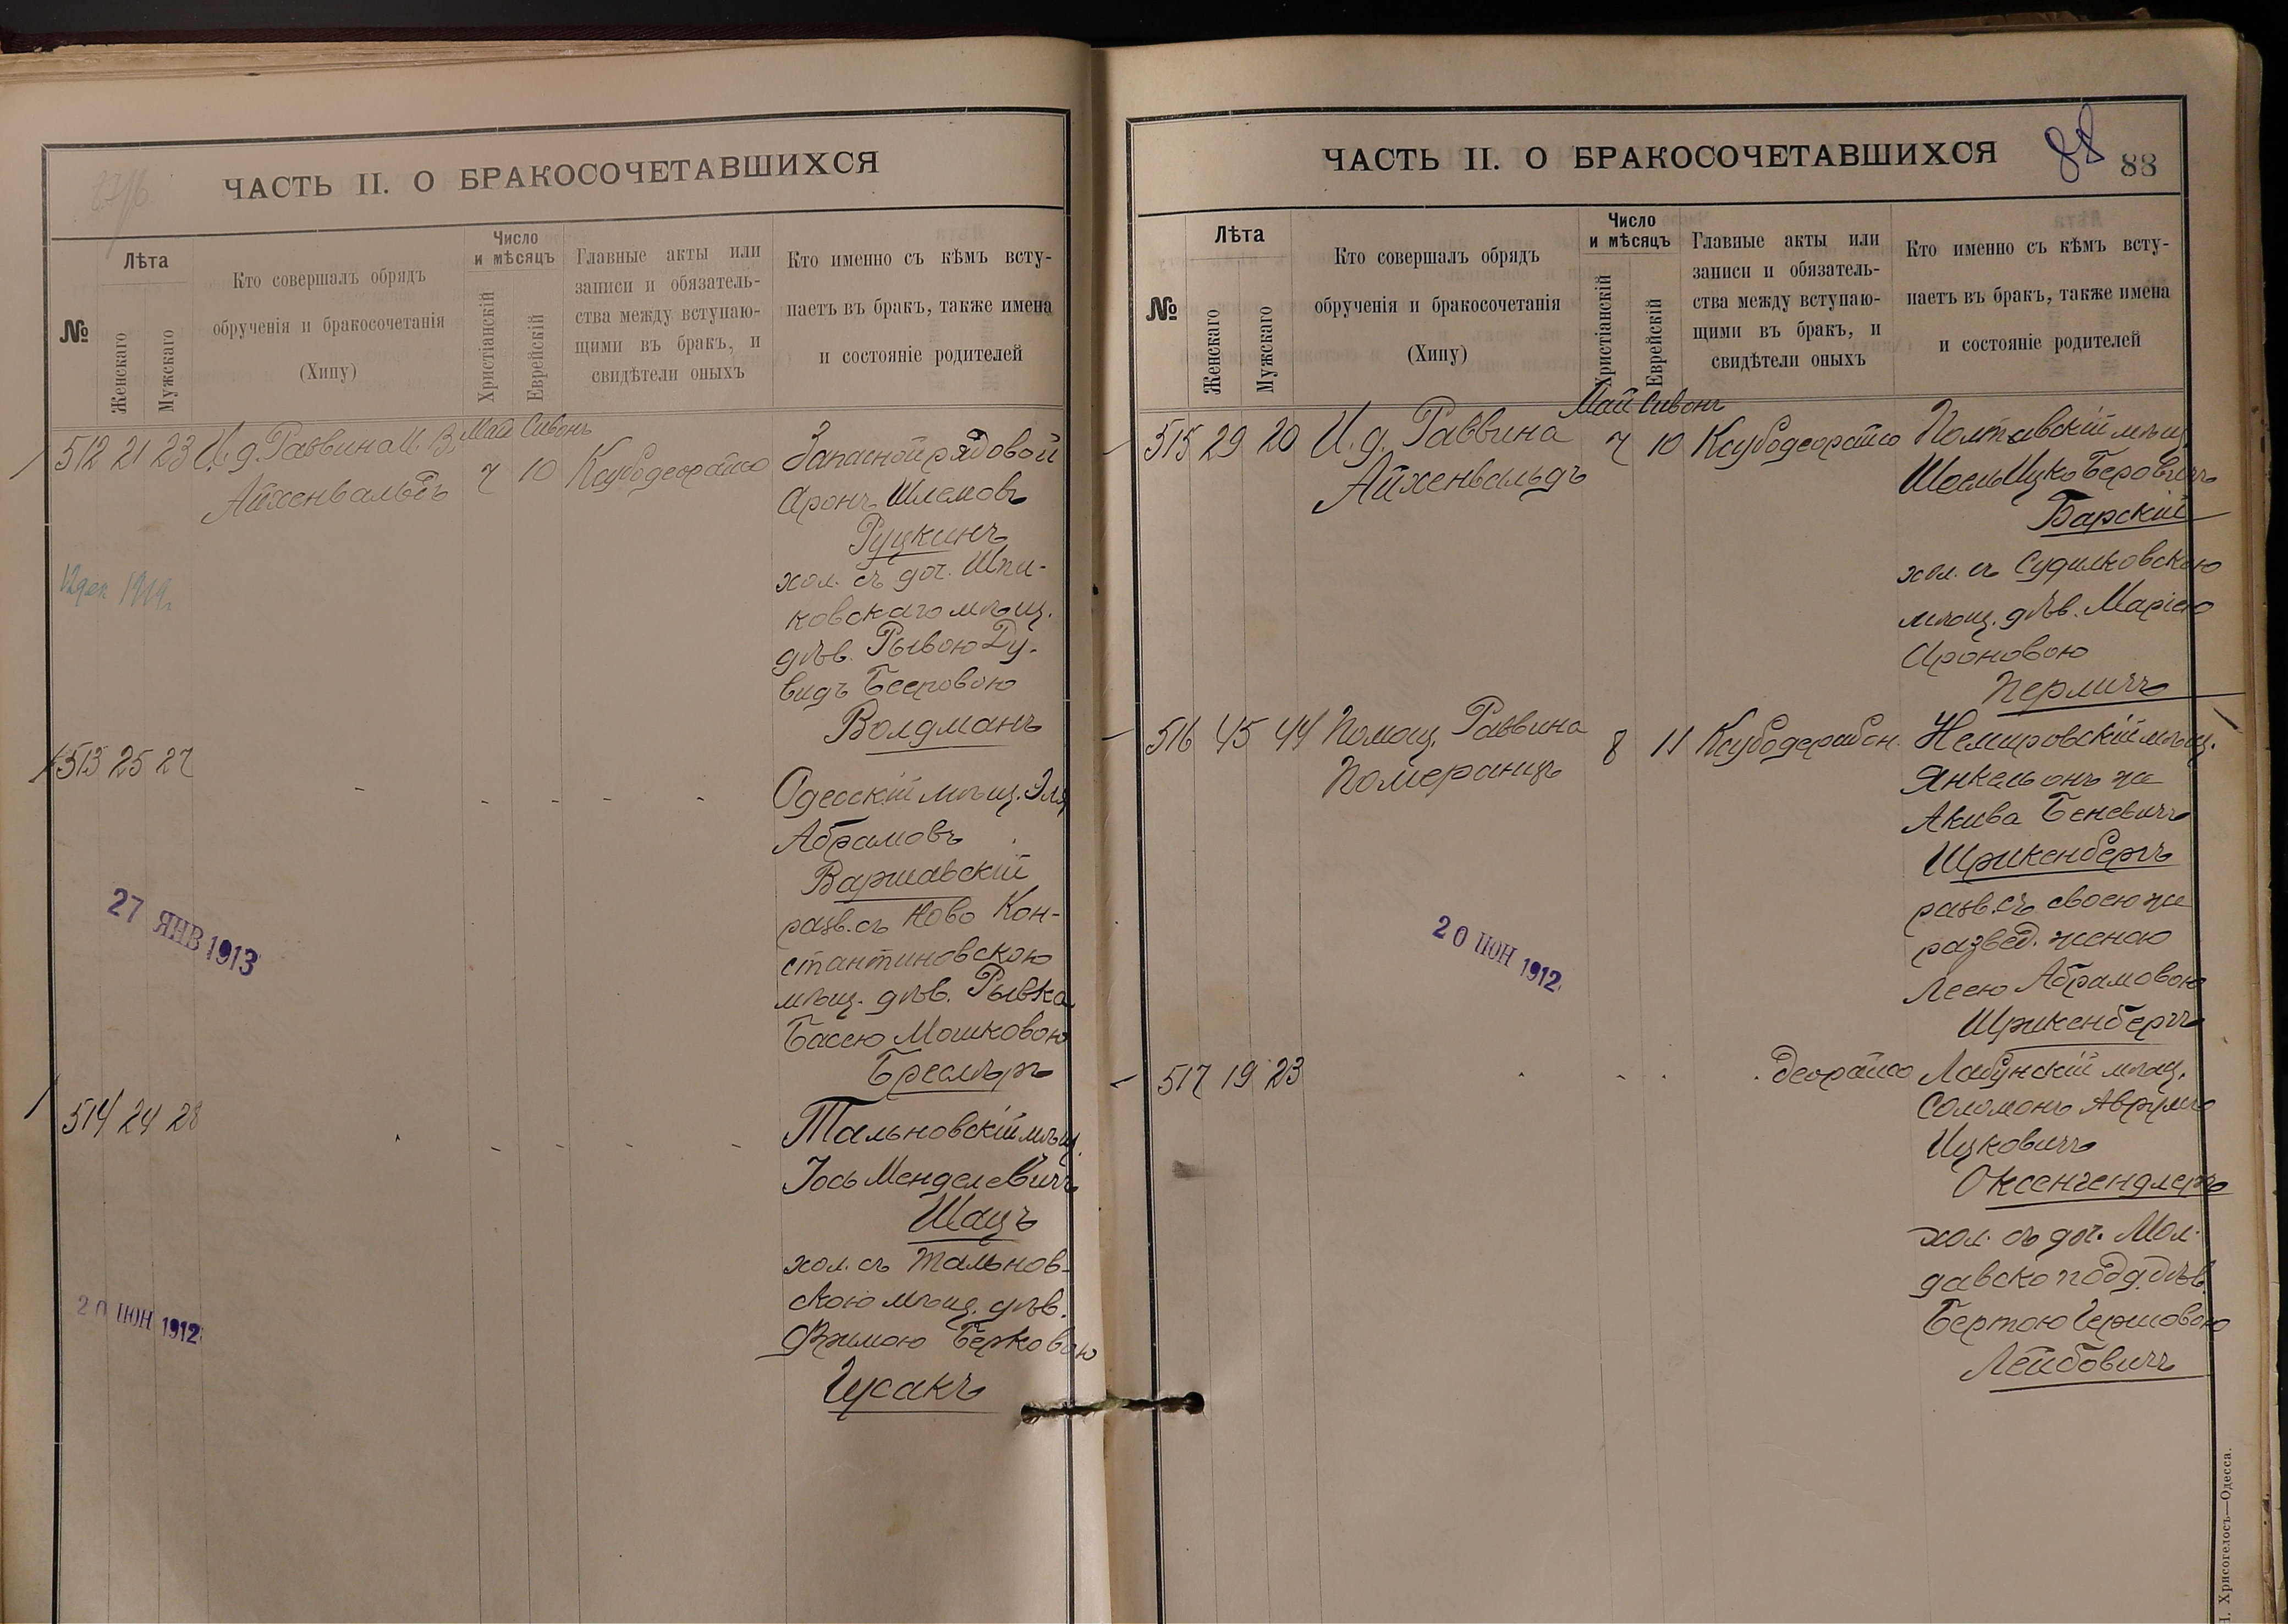 ЧАСТЬ II. О БРАКОСОЧЕТАВШИХСЯ
№
Лѣта
Женскаго
Мужскаго
Кто совершалъ обрядъ
обрученія и бракосочетанія
(Хипу)
Число
и мѣсяцъ
Христіанскій
Еврейскій
Главные акты или
записи и обязатель-
ства между вступаю-
щими въ бракъ, и
свидѣтели оныхъ
Кто именно съ кѣмъ всту-
паетъ въ бракъ, также имена
и состояніе родителей
Май Сивонъ
512 21 23 И. д. Раввина И. В. 7 10 Ксубодеорайсо Запасной рядовой
Айхенвальдъ
Аронъ Шлемовъ
Руцкинъ
хол. съ доч. Шпи-
ковскаго мѣщ.
дѣв. Рывою Ду-
видъ Беровою
Волдманъ
12 дек 1919г.
513 25 27 - - - - - Одесскій мѣщ. Эля
Абрамовъ
Варшавскій
разв. съ Ново Кон-
стантиновскою
мѣщ. дѣв. Рывка
Басею Мошковою
27 ЯНВ 1913
514 24 28 - - - - - Тальновскій мѣщ.
Іось Менделевичъ
Шацъ
хол. съ Тальнов-
скою мѣщ. дѣв.
Фримою Берковою
Гусакъ
20 ІЮН 1912
ЧАСТЬ II. О БРАКОСОЧЕТАВШИХСЯ
88 88
№
Лѣта
Женскаго
Мужскаго
Кто совершалъ обрядъ
обрученія и бракосочетанія
(Хипу)
Число
и мѣсяцъ
Христіанскій
Еврейскій
Главные акты или
записи и обязатель-
ства между вступаю-
щими въ бракъ, и
свидѣтели оныхъ
Кто именно съ кѣмъ всту-
паетъ въ бракъ, также имена
и состояніе родителей
Май Сивонъ
515 29 20 И. д. Раввина 7 10 Ксубодеорайсо Полтавскій мѣщ.
Айхенвальдъ
Ицко Беровичъ
Барскій
хол. съ Судилковскою
мѣщ. дѣв. Маріею
Ароновою
Перличъ
516 45 44 Помощ. Раввина 8 11 Ксубодерабон. Немировскій мѣщ.
Померанцъ
Янкель онъ же
Акива Беневичъ
разв. съ своею же
развед. женою
Леею Абрамовою
20 ІЮН 1912
517 19 23 - - - деорайсо Лабунскій мѣщ.
Соломонъ Аврумъ
Ицковичъ
Оксенгендлеръ
хол. съ доч. Мол-
давско подд. дѣв.
Бертою Гершовою
Лейбовичъ
Хрисогелосъ—Одесса.